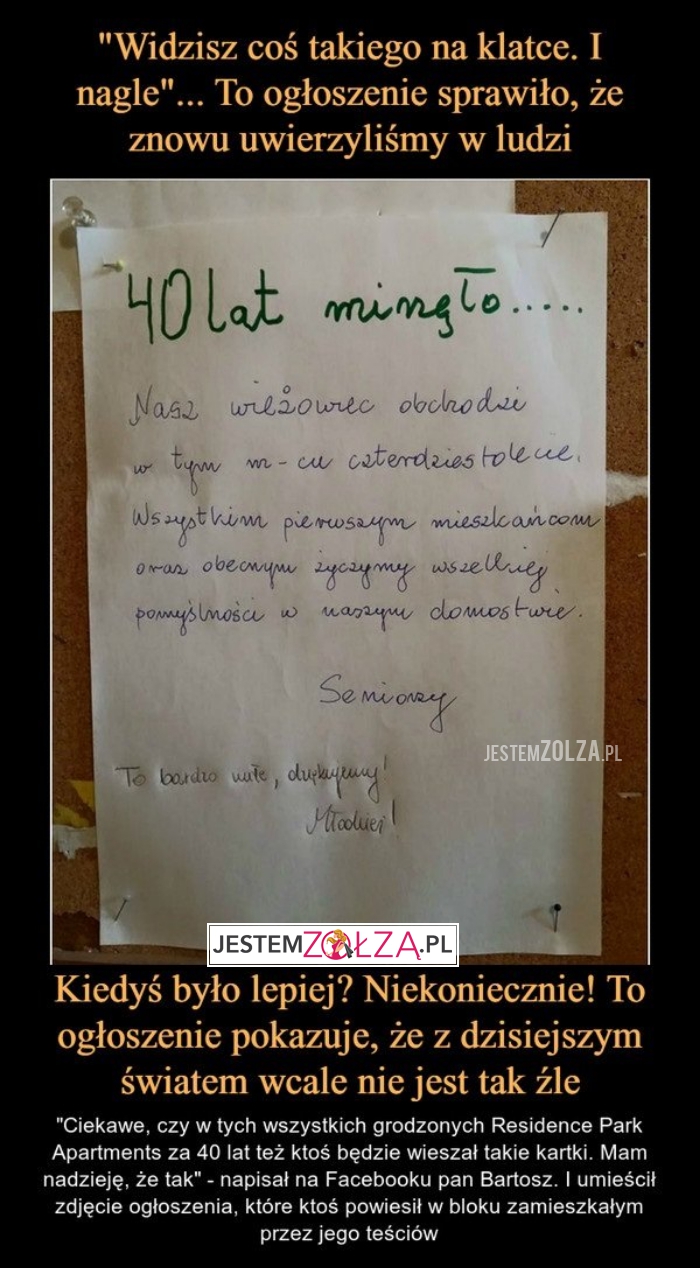 "Widzisz coś takiego na klatce. I
nagle"... To ogłoszenie sprawiło, że
znowu uwierzyliśmy w ludzi
40 lat minęło.....
Nasz wieżowiec obchodzi
w tym m-cu czterdziestolecie.
Wszystkim pierwszym mieszkańcom
oraz obecnym życzymy wszelkiej
pomyślności w naszym domostwie.
Seniorzy
JESTEMZOLZA.PL
To bardzo miłe, dziękujemy!
Młodzież!
JESTEMZOŁZA.PL
Kiedyś było lepiej? Niekoniecznie! To
ogłoszenie pokazuje, że z dzisiejszym
światem wcale nie jest tak źle
"Ciekawe, czy w tych wszystkich grodzonych Residence Park
Apartments za 40 lat też ktoś będzie wieszał takie kartki. Mam
nadzieję, że tak" - napisał na Facebooku pan Bartosz. I umieścił
zdjęcie ogłoszenia, które ktoś powiesił w bloku zamieszkałym
przez jego teściów